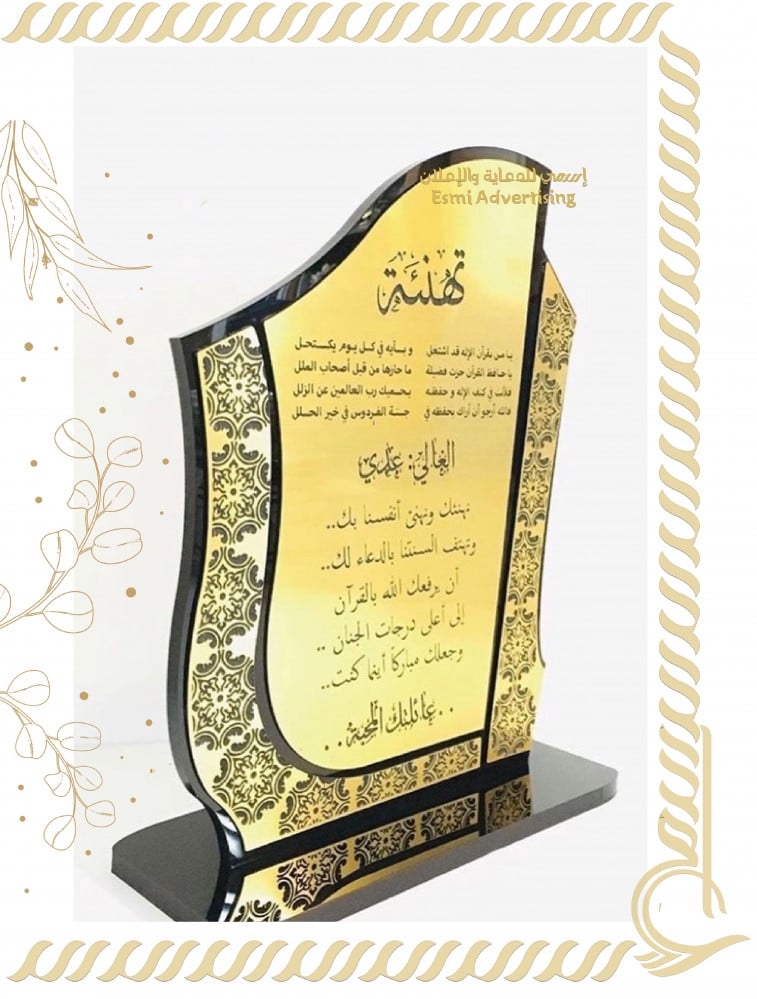 إسمي للدعاية والإعلان
Esmi Advertising
تهنئة
يا من بقرآن الإله قد اشتغل وبآيه في كل يوم يكتحل
يا حافظ القرآن حزت فضيلة ما حازها من قبل أصحاب الملل
فلأنت في كنف الإله وحفظه يحميك رب العالمين عن الزلل
فالله أرجو أن أراك بحفظه في جنة الفردوس في خير الحلل
الغالي: عدي
نهنئك ونهنئ أنفسنا بك..
وتهتف ألسنتنا بالدعاء لك..
أن يرفعك الله بالقرآن
إلى أعلى درجات الجنان ..
وجعلك مباركاً أينما كنت..
.. عائلتك المحبة ..